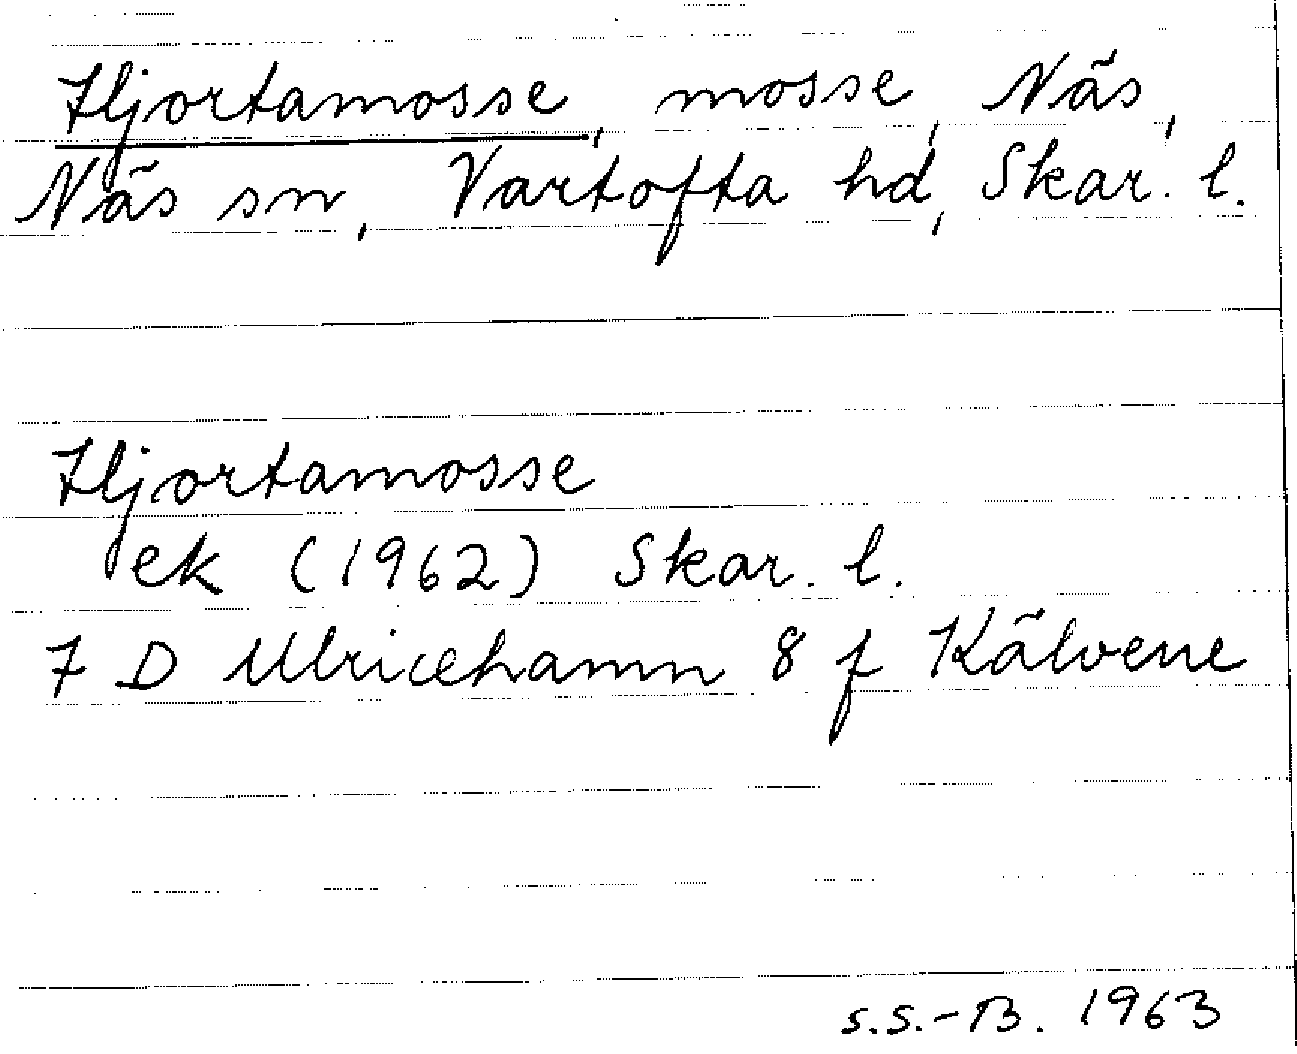 Hjortamosse, mosse, Näs,
Näs sn, Vartofta hd, Skar. l.
Hjortamosse
ek (1962) Skar. l.
7 D Ulricehamn 8 f Kälvene
S.S.-B. 1963